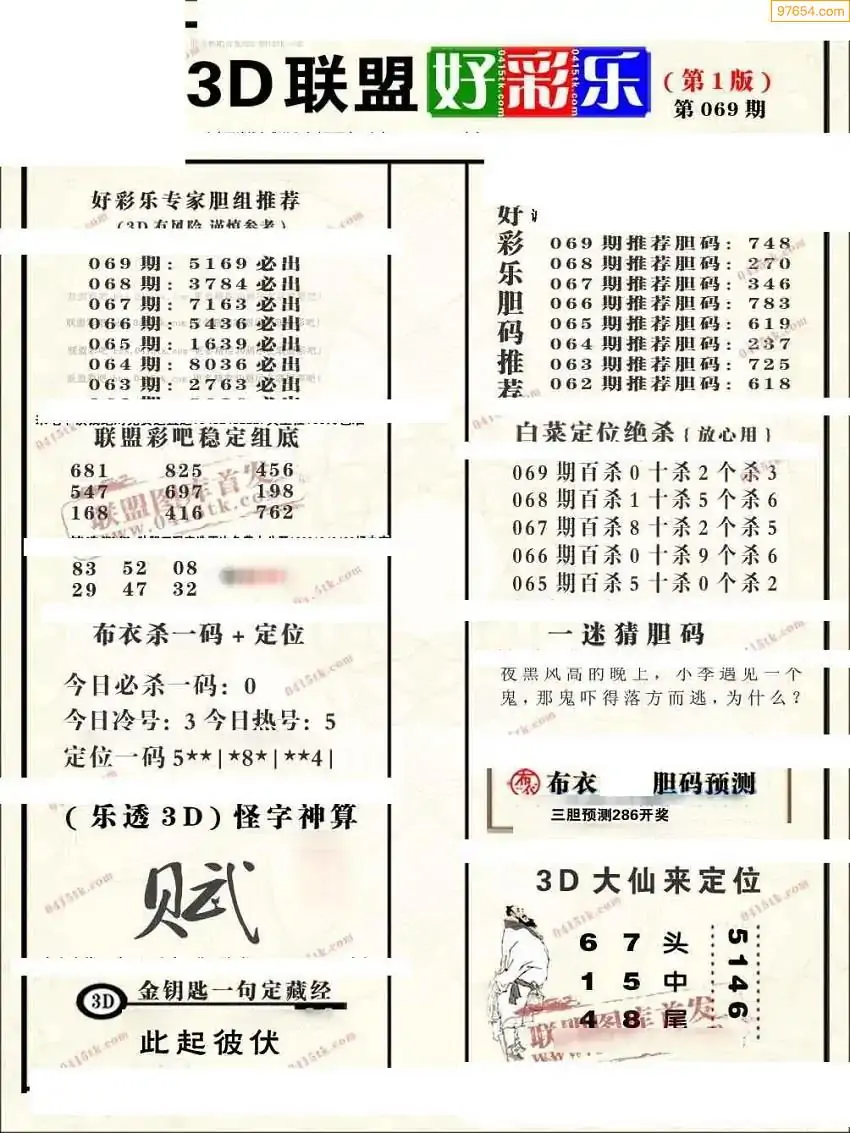 97654.com
3D联盟好彩乐
(第1版)
第069期
好彩乐专家胆组推荐
(3D有风险 谨慎参考)
069期: 5169必出
068期: 3784必出
067期: 7163必出
066期: 5436必出
065期: 1639必出
064期: 8036必出
063期: 2763必出
联盟彩吧稳定组底
681 825 456
547 697 198
168 416 762
联盟图库首发
www.0415tk.com
83 52 08
29 47 32
布衣杀一码+定位
今日必杀一码: 0
今日冷号: 3 今日热号: 5
定位一码5**|*8*|**4|
(乐透3D)怪字神算
赋
3D 金钥匙一句定藏经
此起彼伏
好彩乐胆码推荐
069期推荐胆码: 748
068期推荐胆码: 270
067期推荐胆码: 346
066期推荐胆码: 783
065期推荐胆码: 619
064期推荐胆码: 237
063期推荐胆码: 725
062期推荐胆码: 618
白菜定位绝杀{放心用}
069期百杀0十杀2个杀3
068期百杀1十杀5个杀6
067期百杀8十杀2个杀5
066期百杀0十杀9个杀6
065期百杀5十杀0个杀2
一迷猜胆码
夜黑风高的晚上,小李遇见一个
鬼,那鬼吓得落方而逃,为什么?
布衣 胆码预测
三胆预测286开奖
3D大仙来定位
6 7 头
1 5 中
4 8 尾
5146
联盟图库首发
0415tk.com